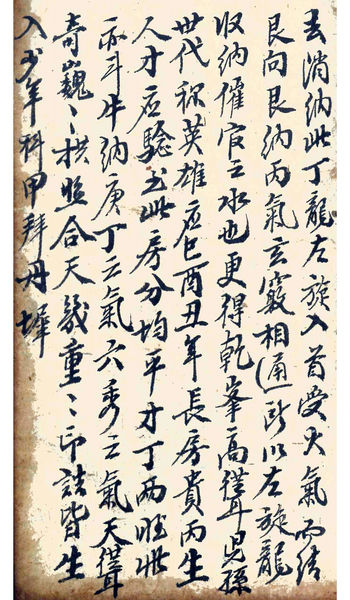 去消納此丁龍左旋入首受火氣而結
艮向艮納丙氣玄竅相通所以左旋龍
收納催官之水也更得乾峯高聳兒孫
世代称英雄应巳酉丑年長房貴丙生
人才应驗此房分均平才丁两旺此
亦斗牛納庚丁之氣六秀之氣天聳
奇巍〻拱照合天幾重〻印誥皆生
入少年科甲拜丹墀